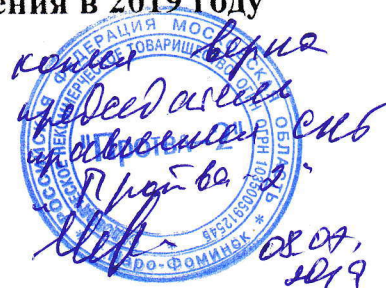 ения в 2019 году
копия верна
председатель
правления СНТ
"Протва-2"
08.07.
2019
РОССИЙСКАЯ ФЕДЕРАЦИЯ МОСКОВСКАЯ ОБЛАСТЬ
НЕКОММЕРЧЕСКОЕ ТОВАРИЩЕСТВО
"Протва-2"
Наро-Фоминск